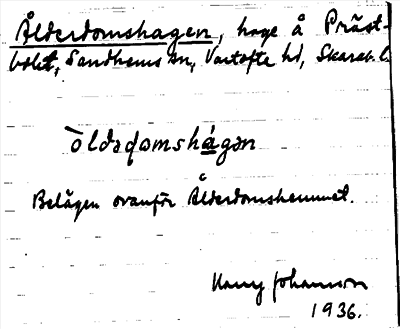 Ålderdomshagen, hage å Präst-
bolet, Sandhems sn, Vartofte hd, Skarab. l.
òldədomshágən
Belägen ovanför Ålderdomshemmet.
Harry Johansson
1936.